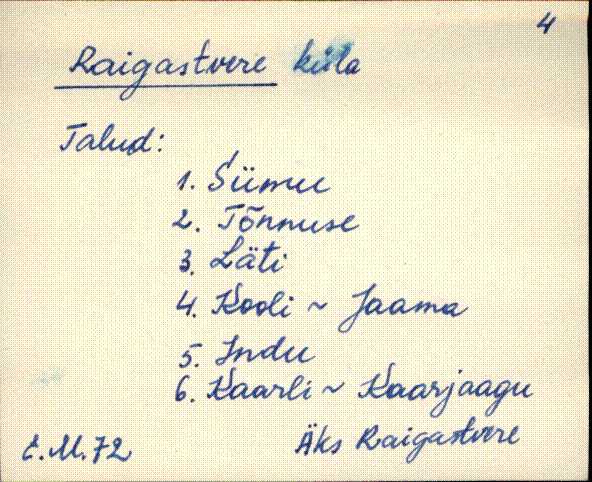 4
Raigastvere küla
Talud:
1. Siimu
2. Tõnnuse
3. Läti
4. Kooli ~ Jaama
5. Indu
6. Kaarli ~ Kaarjaagu
Äks Raigastvere
E.M.72